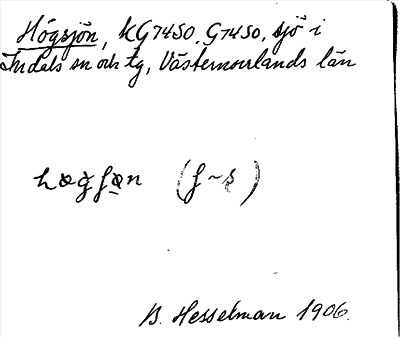 Högsjön, KG7450, G7450, sjö i
Indals sn och tg, Västernorrlands län
høgʃøn (ʃ~ʂ)
B. Hesselman 1906.